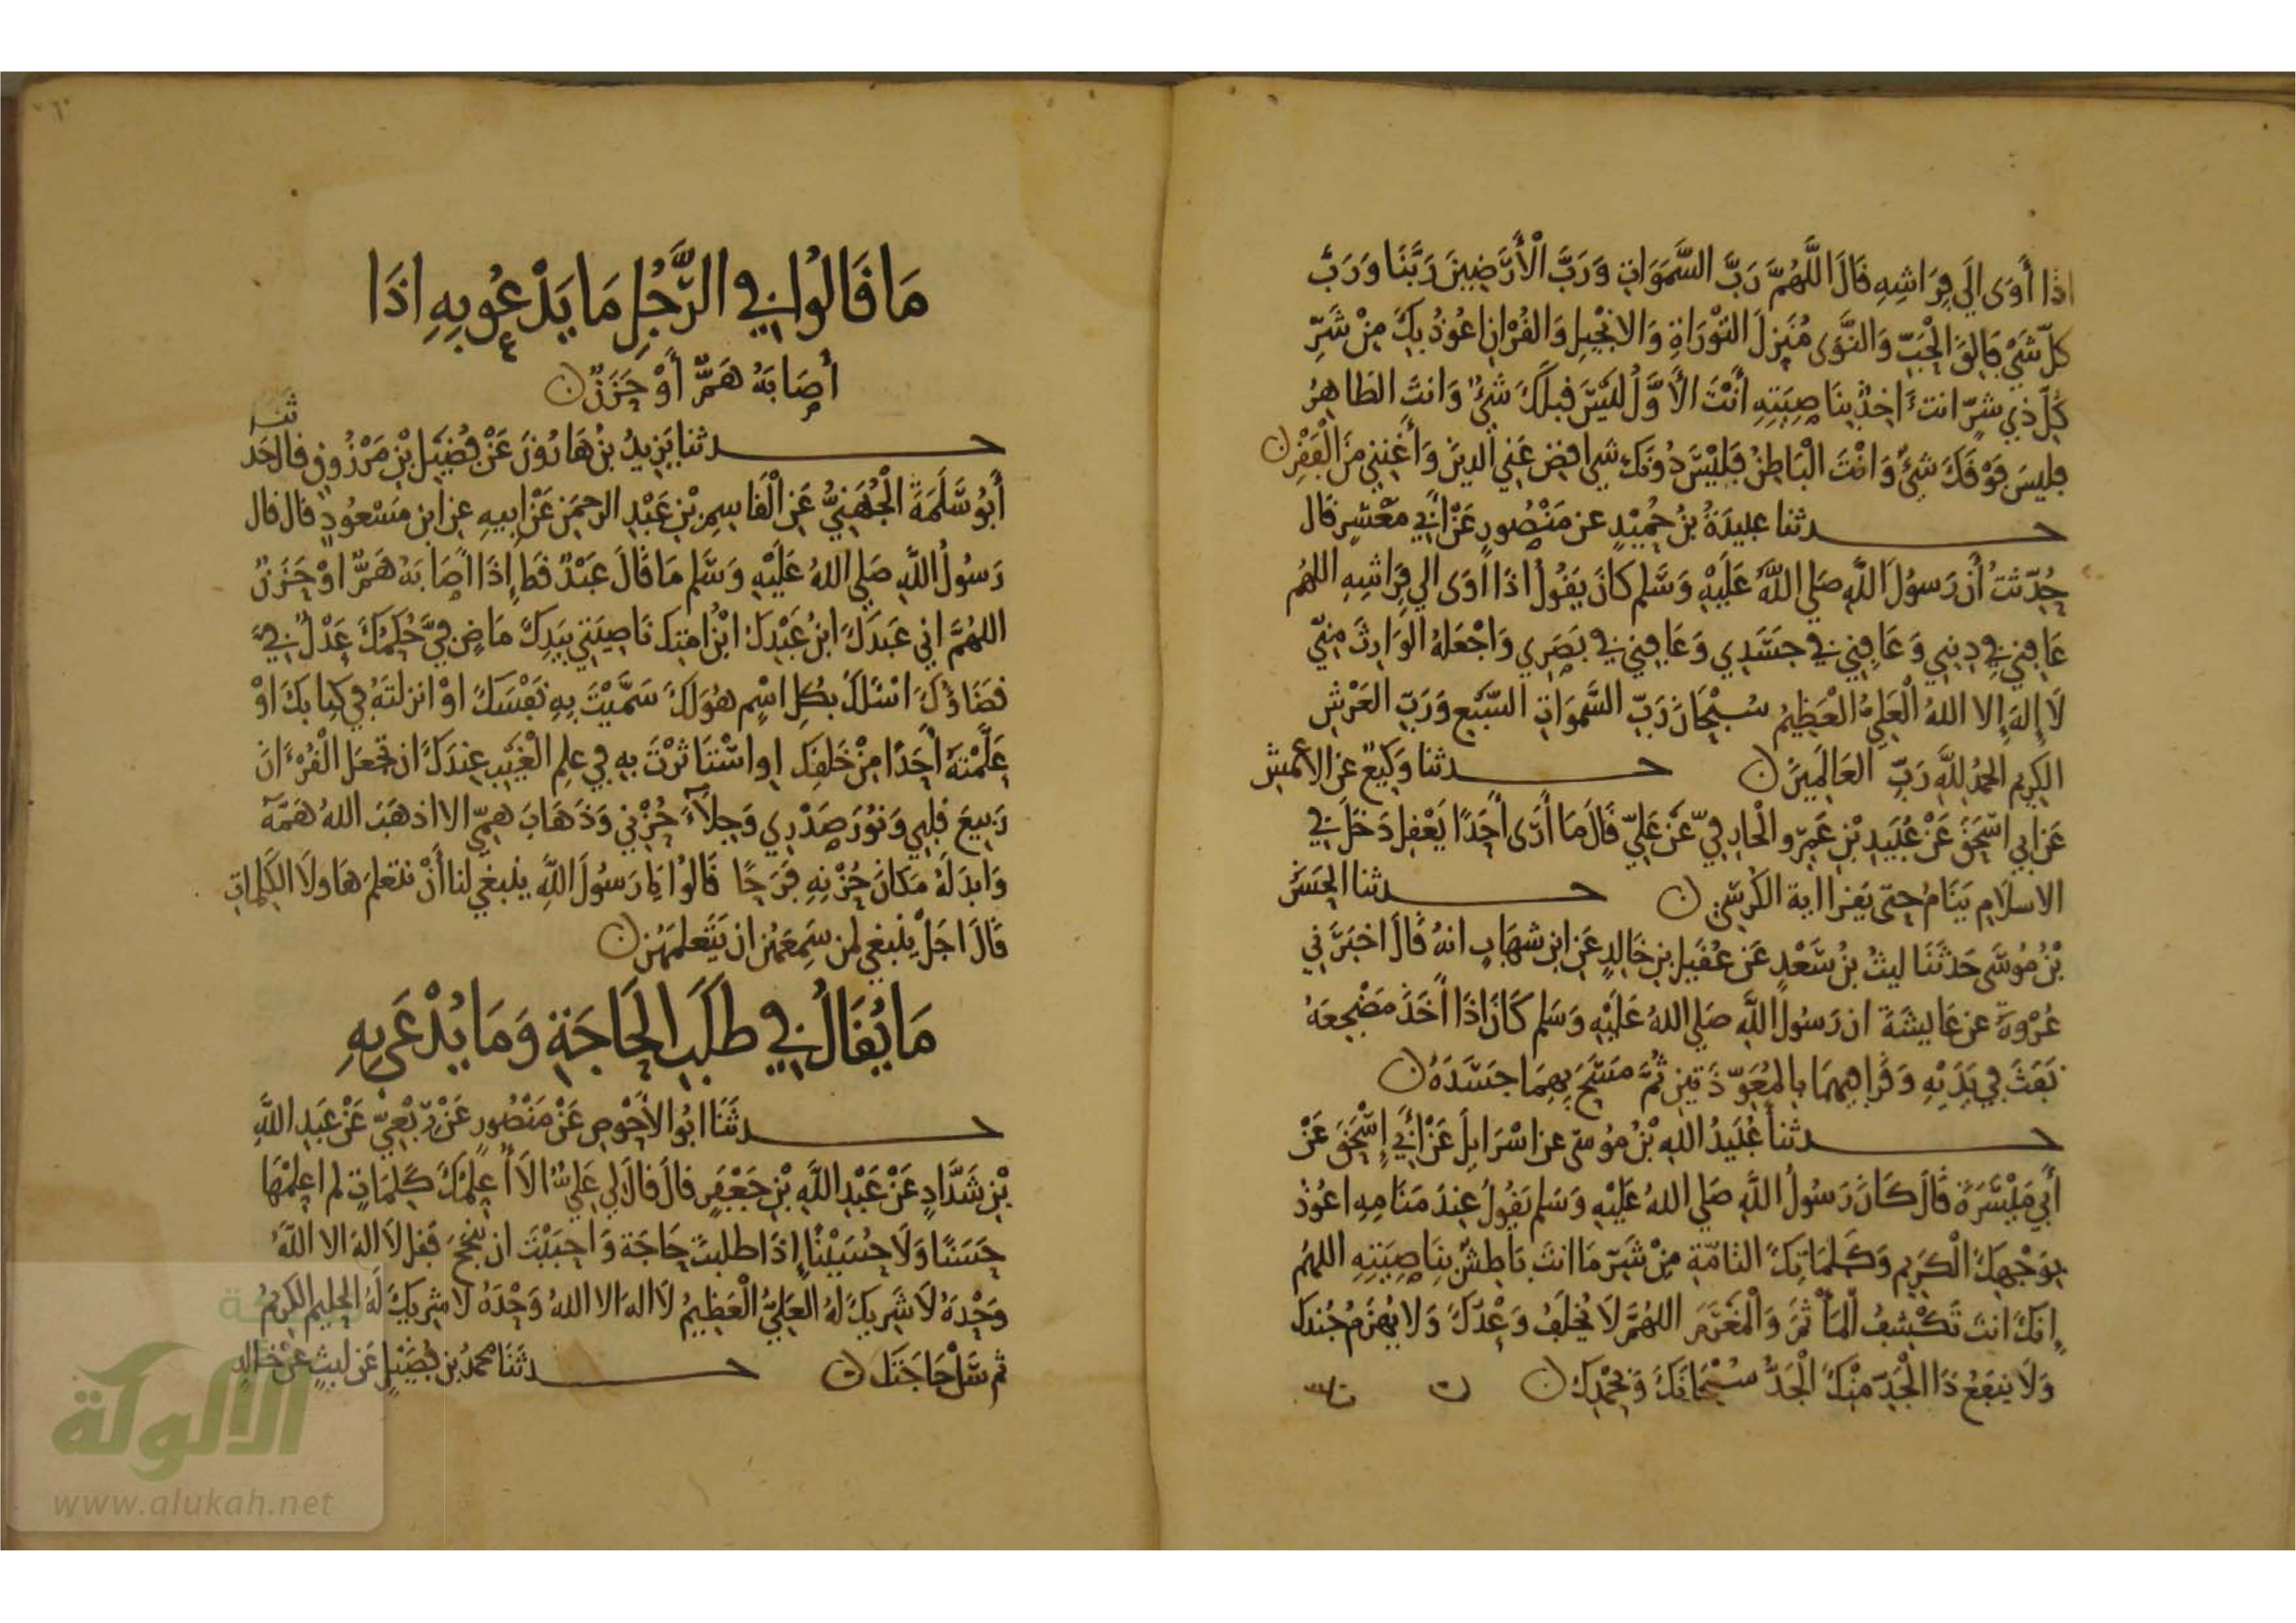 اذا أَوَى الَي فِرَاشِهِ قَالَ اللَّهُمَّ رَبَّ السَّمَوَاتِ وَرَبَّ الْأَرَضِينَ رَبَّنَا وَرَبَّ
كلّ شَيْ فَالِقَ الْحَبِّ وَالنَّوَى مُنَزِلَ التَّوْرَاةِ وَالانْجِيلِ وَالقُرْانِ اعُوذُ بِكَ مِنْ شَرِّ
كُلِّ ذِي شرّ انت ءَاخِذٌ بِنَاصِيَتِهِ أَنْتَ الأَوَّلُ لَيْسَ قبلَكَ شَيْ وَانتَ الظَاهِرُ
فليسَ فَوْقَكَ شَيْ وَانْتَ الْبَاطِنُ فَلَيْسَ دُونَكَ شي اقضِ عَنِي الدينَ وَأَغْنِنِي مِنَ الْفَقْرِ ن
حدثنا عبيدَةُ بنُ حُمَيْدٍ عن مَنْصُورٍ عَنْ أَبِي مَعْشَرٍ قَال
حُدِّثتُ أن رَسولَ اللَّهِ صَلي اللَّهُ عَلَيْهِ وَسَّلم كانَ يَقُولُ اذَا اَوَى الي فِرَاشِهِ اللهُم
عَافِنِي فِي دِينِي وَعَافِنِي فِي جَسَدِي وَعَافِنِي فِي بَصَرِي وَاجْعَلهُ الوَارِثَ مِنِّي
لَا إِلهَ إِلا اللهُ الْعَلِيُ الْعَظِيمُ سُبْحَانَ رَبِّ السَّمَوَاتِ السَّبْعِ وَرَبِّ العَرْشِ
الكرِيمِ الحمدُ للَّهِ رَبِّ العَالَمِينَ ن حدثنا وَكِيعٌ عن الأعمشِ
عَن ابي اسْحَقَ عَنْ عُبَيدِ بْنِ عَمْرٍو الْخَارِفِيّ عَنْ عَلِيّ قَالَ مَا أَرَى أحَدًا يَعْقِل دَخَلَ فِي
الاسلَامِ يَنَامُ حتّى يَقرا اية الكُرسّي ن حدثنا الحَسَنُ
بْنُ مُوسَى حَدثَنَا ليثُ بنُ سَعْدٍ عَن عُقَيلِ بنِ خَالِدٍ عَن ابن شهَابٍ انهُ قَالَ اخبَرَنِي
عُرْوةَ عن عَايشَةَ ان رَسُولَ اللَّهِ صَلي اللهُ عَلَيْهِ وَسَلم كَانَ اذَا أَخَذَ مَضْجعَهُ
نَفَثَ فِي يَدَيْهِ وَقَرا فيهِمَا بالمُعَوّذَتينِ ثُمَّ مَسَحَ بِهِمَا جَسَدَهُ ن
حدثنا عُبَيدُ اللهِ بْنُ مُوسَى عن اسْرَايلَ عَنْ أَبِي إِسْحَقَ عَنْ
أَبِي مَيْسَرَةَ قَالَ كَانَ رَسُولُ اللَّهِ صَلي اللهُ عَلَيْهِ وَسَلم يَقُولُ عِندَ مَنَامِهِ اعُوذُ
بِوَجْهِكَ الْكَرِيمِ وَكَلِمَاتِكَ التَامّةِ مِنْ شَرّ مَا انتَ بَاطِشٌ بِنَاصِيَتِهِ اللهُم
اِنكَ انت تَكْشِفُ المَأْثمَ وَالْمَغْرَمَ اللهُمَّ لَا يُخْلَفُ وَعْدُكَ وَلا يُهزَمُ جُندكَ
وَلَا يَنفَعُ ذَا الْجَدّ مِنْكَ الْجَدُّ سُبْحَانَكَ وَبِحَمْدِكَ ن
مَا قَالُوا فِي الرَّجُلِ مَا يَدْعُو بِهِ اذَا
أَصَابَهُ هَمٌّ أَوْ حَزَنٌ ن
حدثنا يَزِيدُ بنُ هَارُونَ عَنْ فُضَيلِ بْنِ مَرْزُوقٍ قال حَدثنا
أَبُو سَلَمَةَ الْجُهَنِيُّ عَنِ الْقَاسِمِ بْنِ عَبْدِ الرحمَنِ عَنْ ابيهِ عن ابن مَسْعُودٍ قال قال
رَسُولُ اللَّهِ صَلي اللهُ عَلَيْهِ وَسَلم مَا قَالَ عَبْدٌ قَط إِذَا اَصَابَهُ هَمٌّ اوْ حَزَنٌ
اللهُمَّ اني عَبدَكَ ابنُ عَبْدِكَ ابْنُ امتِكَ نَاصِيَتِي بِيَدِكَ مَاضٍ فِيَّ حُكمُكَ عَدْلٌ فِيَّ
قضَاؤُكَ اسْئَلكَ بكُلِ اسْمٍ هوَ لَكَ سَمَّيْتَ بِهِ نَفْسَكَ اوْ انزلتَهُ فِي كِتابكَ اوْ
عَلَّمْتَهُ أحَدًا مِنْ خَلقِكِ اوِ اسْتَاثَرْتَ بِهِ فِي علِم الْغَيْبِ عِندَكَ ان تَجعَلَ الْقُرْءَانَ
رَبِيعَ قلبِي وَنُورَ صَدْرِي وَجِلَآءَ حُزْنِي وَذَهَابَ هَمِّي الا اذهَبَ اللهُ هَمَّهُ
وَابدَلَهُ مَكَانَ حُزْنِهِ فَرَحًا قَالُوا يَا رَسُولَ اللَّهِ ينبغي لنا أَنْ نتعلمَ هَاولَاَ الكَلِماتِ
قَالَ اجَلْ ينبغي لمن سَمِعَهُن ان يَتَعلمَهُن ن
مَا يُقَالُ فِي طَلَبِ الْحَاجَةِ وَمَا يُدْعَى بِهِ
حدثَنَا ابُو الأَحْوَصِ عَنْ مَنْصُورٍ عَنْ رِبْعِيّ عَنْ عَبدِ اللَّهِ
بْنِ شَدَّادٍ عَنْ عَبْدِ اللَّهِ بْنِ جَعْفَرٍ قالَ قالَ لِي عَلِيٌّ الَا أُعَلِّمُكَ كَلِمَاتٍ لم اعَلِمْهَا
حَسَنًا وَلَا حُسَيْنًا إِذَا طلبتَ حَاجَة وَاَحبَبْتَ ان تنجَحَ فَقل لَا اِلهَ الا اللَّهُ
وَحْدَهُ لَا شَرِيكَ لهُ العَلِيُّ الْعَظِيمُ لَا الهَ الا اللهُ وَحْدَهُ لَا شرِيكَ لَهُ الحليم الكريمُ
ثم سَلْ حَاجَتَكَ ن حدثَنَا محمدُ بنِ فُضَيْلٍ عَن ليثٍ عن خالدٍ
الألوكة
www.alukah.net